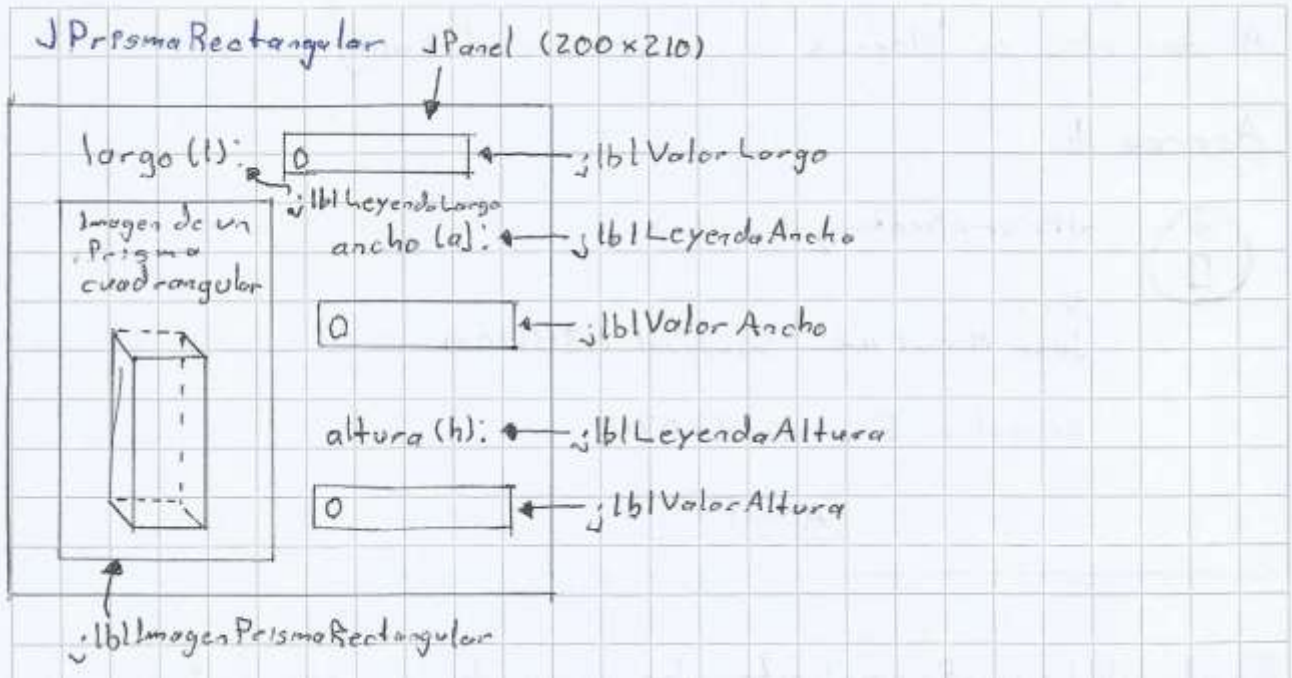 JPrismaRectangular JPanel (200x210)
largo (l): 0 jlblValorLargo
jlblLeyendaLargo
Imagen de un
Prisma
cuadrangular
ancho (a): jlblLeyendaAncho
0 jlblValorAncho
altura (h): jlblLeyendaAltura
0 jlblValorAltura
jlblImagenPrismaRectangular